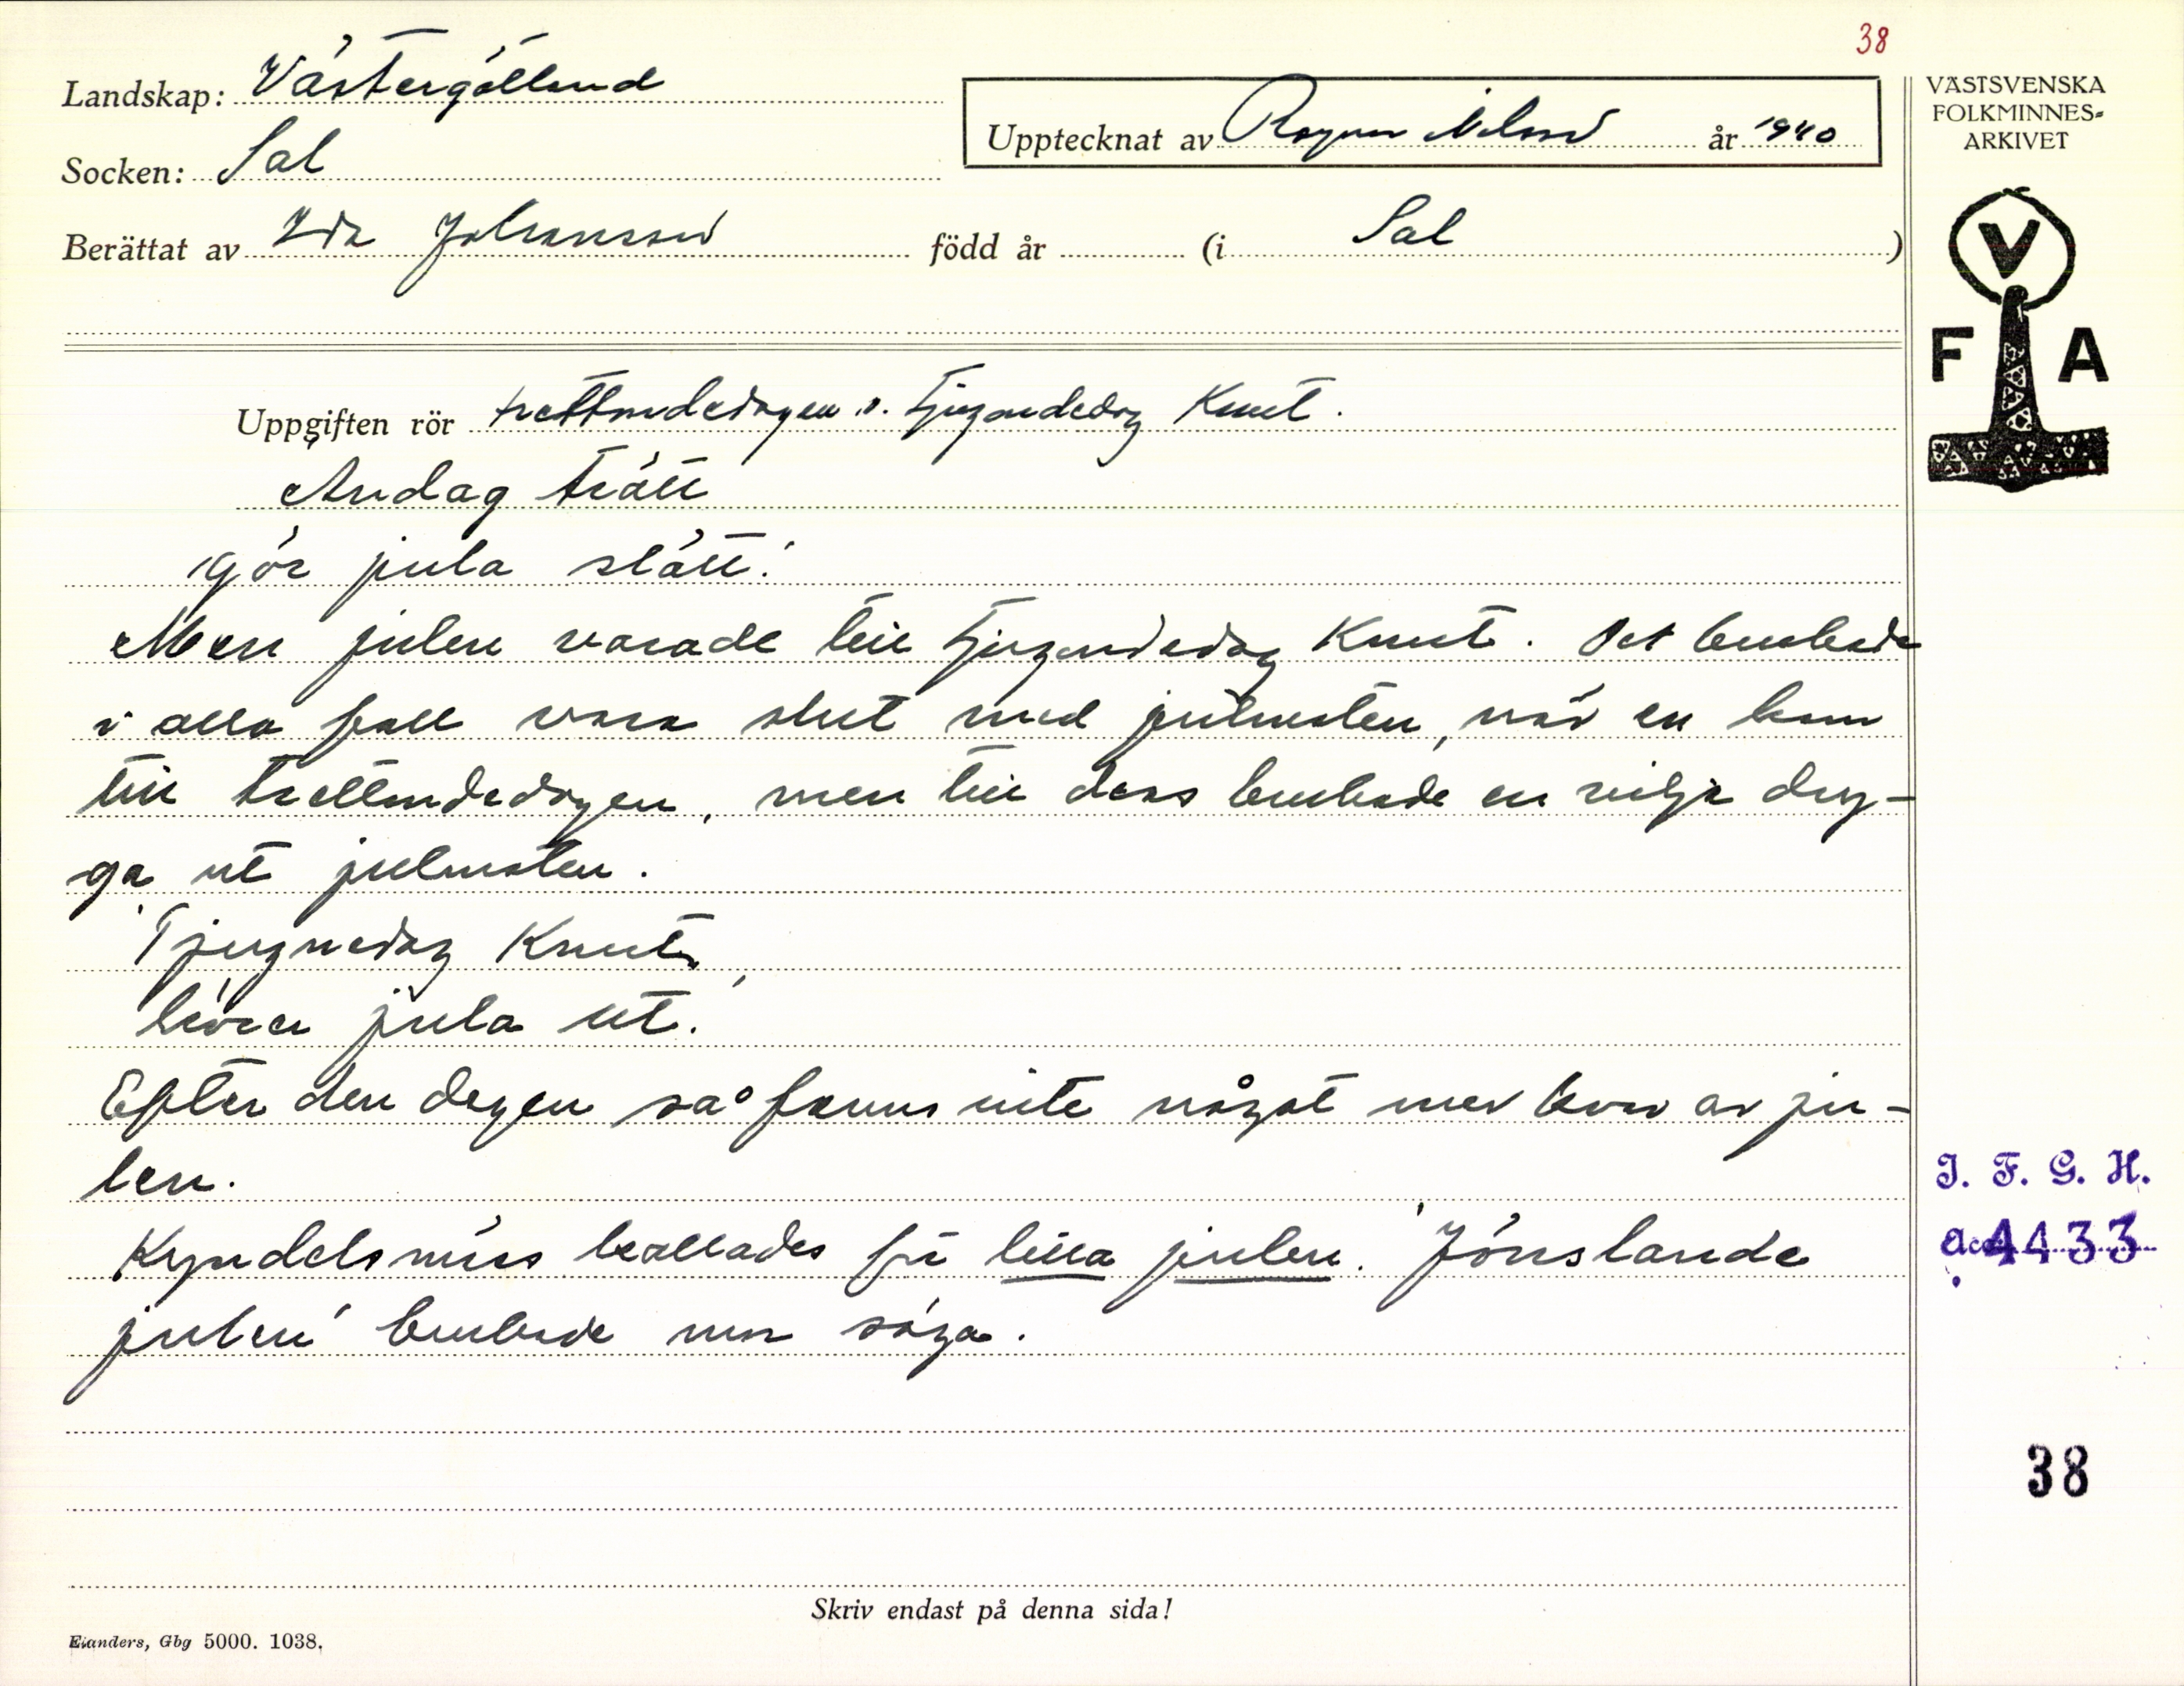 38
Landskap: Västergötland
Upptecknat av Ragnar Nilsson år 1940
Socken: Sal
Berättat av Ida Johansson född år (i Sal)
VÄSTSVENSKA
FOLKMINNES-
ARKIVET
V
F A
Uppgiften rör trettondedagen o. Tjugondedag Knut.
"Andag trätt
gör jula slätt."
Men julen varade till Tjugondedag Knut. Det brukade
i alla fall vara slut med julmaten, när en kom
till trettondedagen, men till dess brukade en vilja dry-
ga ut julmaten.
"Tjugnedag Knut,
körer jula ut."
Efter den dagen så fanns inte något mer kvar av ju-
len.
Kyndelsmäss kallades för lilla julen. "Jönslanda
julen" brukade man säga.
I. F. G. H.
Acc. 4433
38
Skriv endast på denna sida!
Eianders, Gbg 5000. 1038.